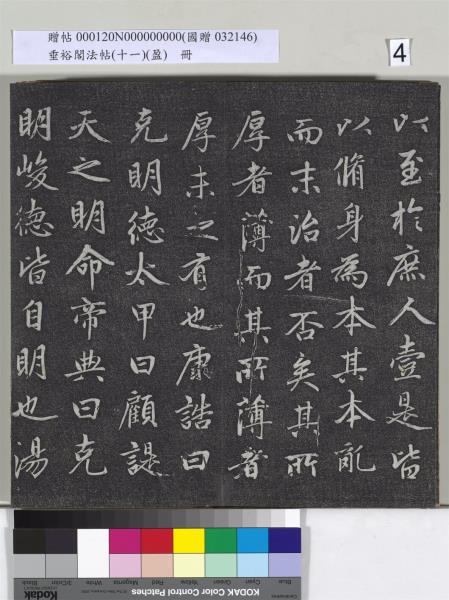 贈帖 000120N000000000(國贈 032146)
垂裕閣法帖(十一)(盈) 冊
4
以至於庶人壹是皆
以脩身為本其本亂
而末治者否矣其所
厚者薄而其所薄者
厚未之有也康誥曰
克明德太甲曰顧諟
天之明命帝典曰克
明峻德皆自明也湯
Blue Cyan Green Yellow Red Magenta White 3/Color Black
KODAK Color Control Patches